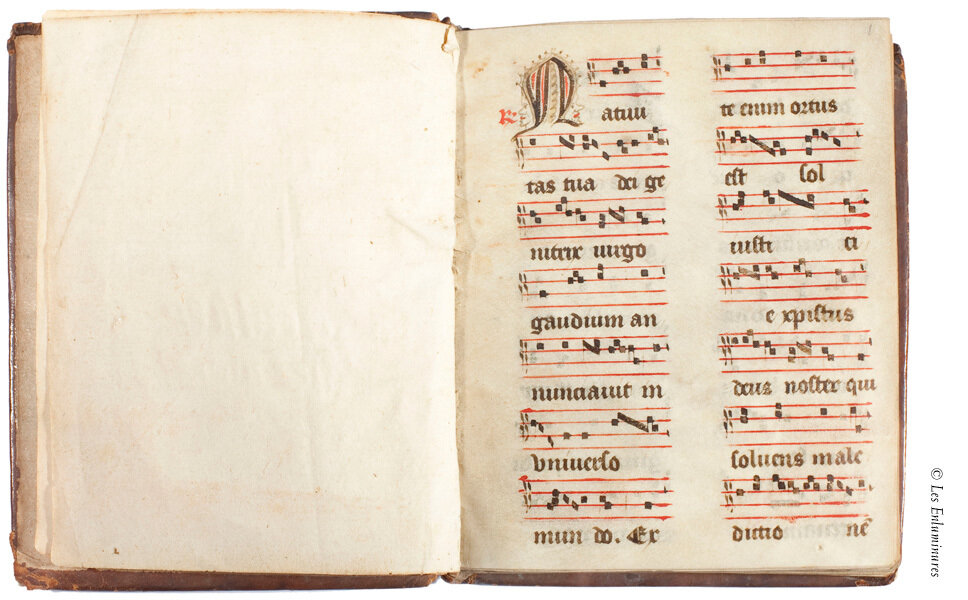 R. Natiui
tas tua dei ge
nitrix uirgo
gaudium an
nunciauit in
vniuerso
mun do. Ex
te enim ortus
est sol
iusti ci
e xpistus
deus noster qui
soluens male
dictio nē
© Les Enluminures